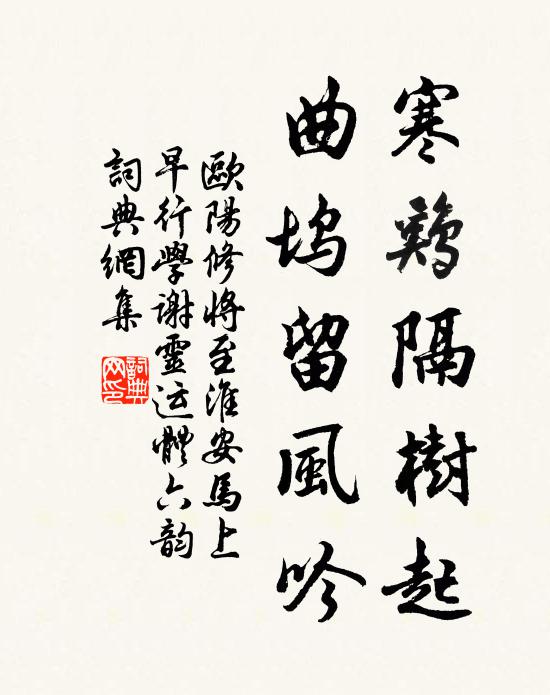 寒鷄隔樹起
曲塢留風吟
歐陽修將至淮安馬上
早行學謝靈運體六韵
詞典網集
詞典
网印